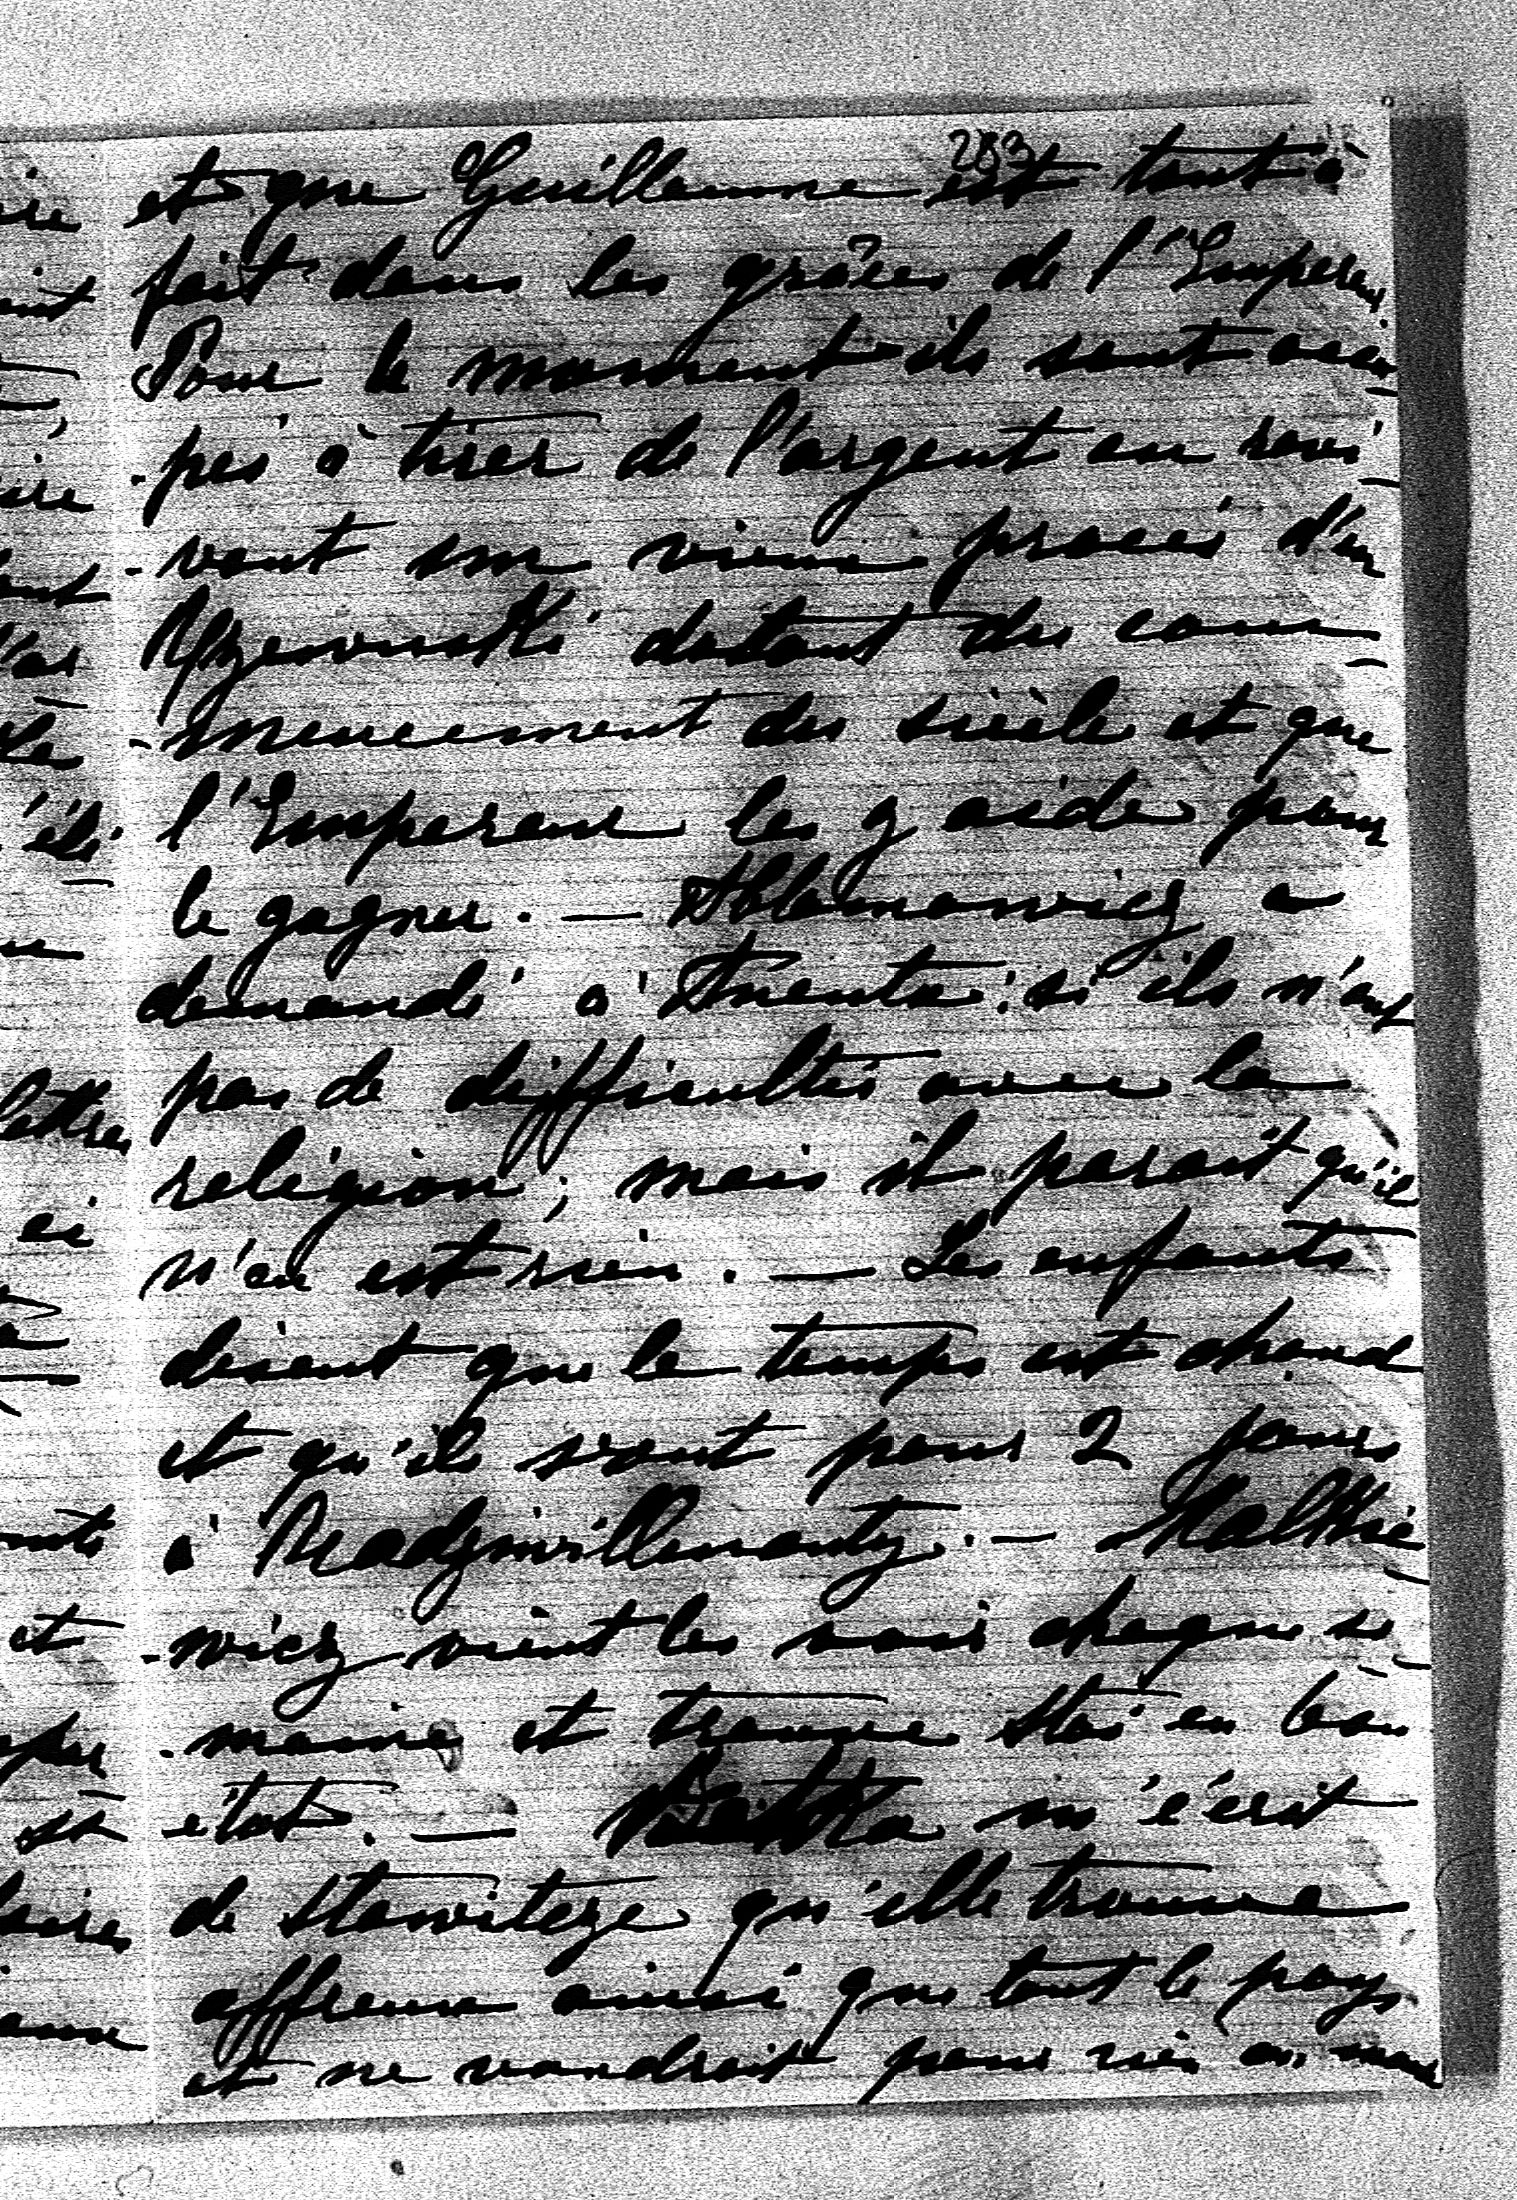 283
et que Guillaume est tout à
fait dans les grâces de l'Empereur.
Pour le moment ils sont occu-
-pés à tirer de l'argent en revi-
-vant un vieux procès d'un
Rzewuski datant du com-
-mencement du siècle et que
l'Empereur les y aide pour
le gagner. — Abłamowicz a
demandé à si ils n'ont
pas de difficultés avec la
religion; mais il parait qu'il
n'en est rien. — Les enfants
disent que le temps est chaud
et qu'ils vont pour 2 jours
à Radziwillmonty. — Malkie-
-wicz vient les voir chaque se-
-maine et trouve Staś en bon
état. — m'écrit
de Stawiteze qu'elle trouve
affreux ainsi que tout le pays
et ne voudrait pour rien au monde